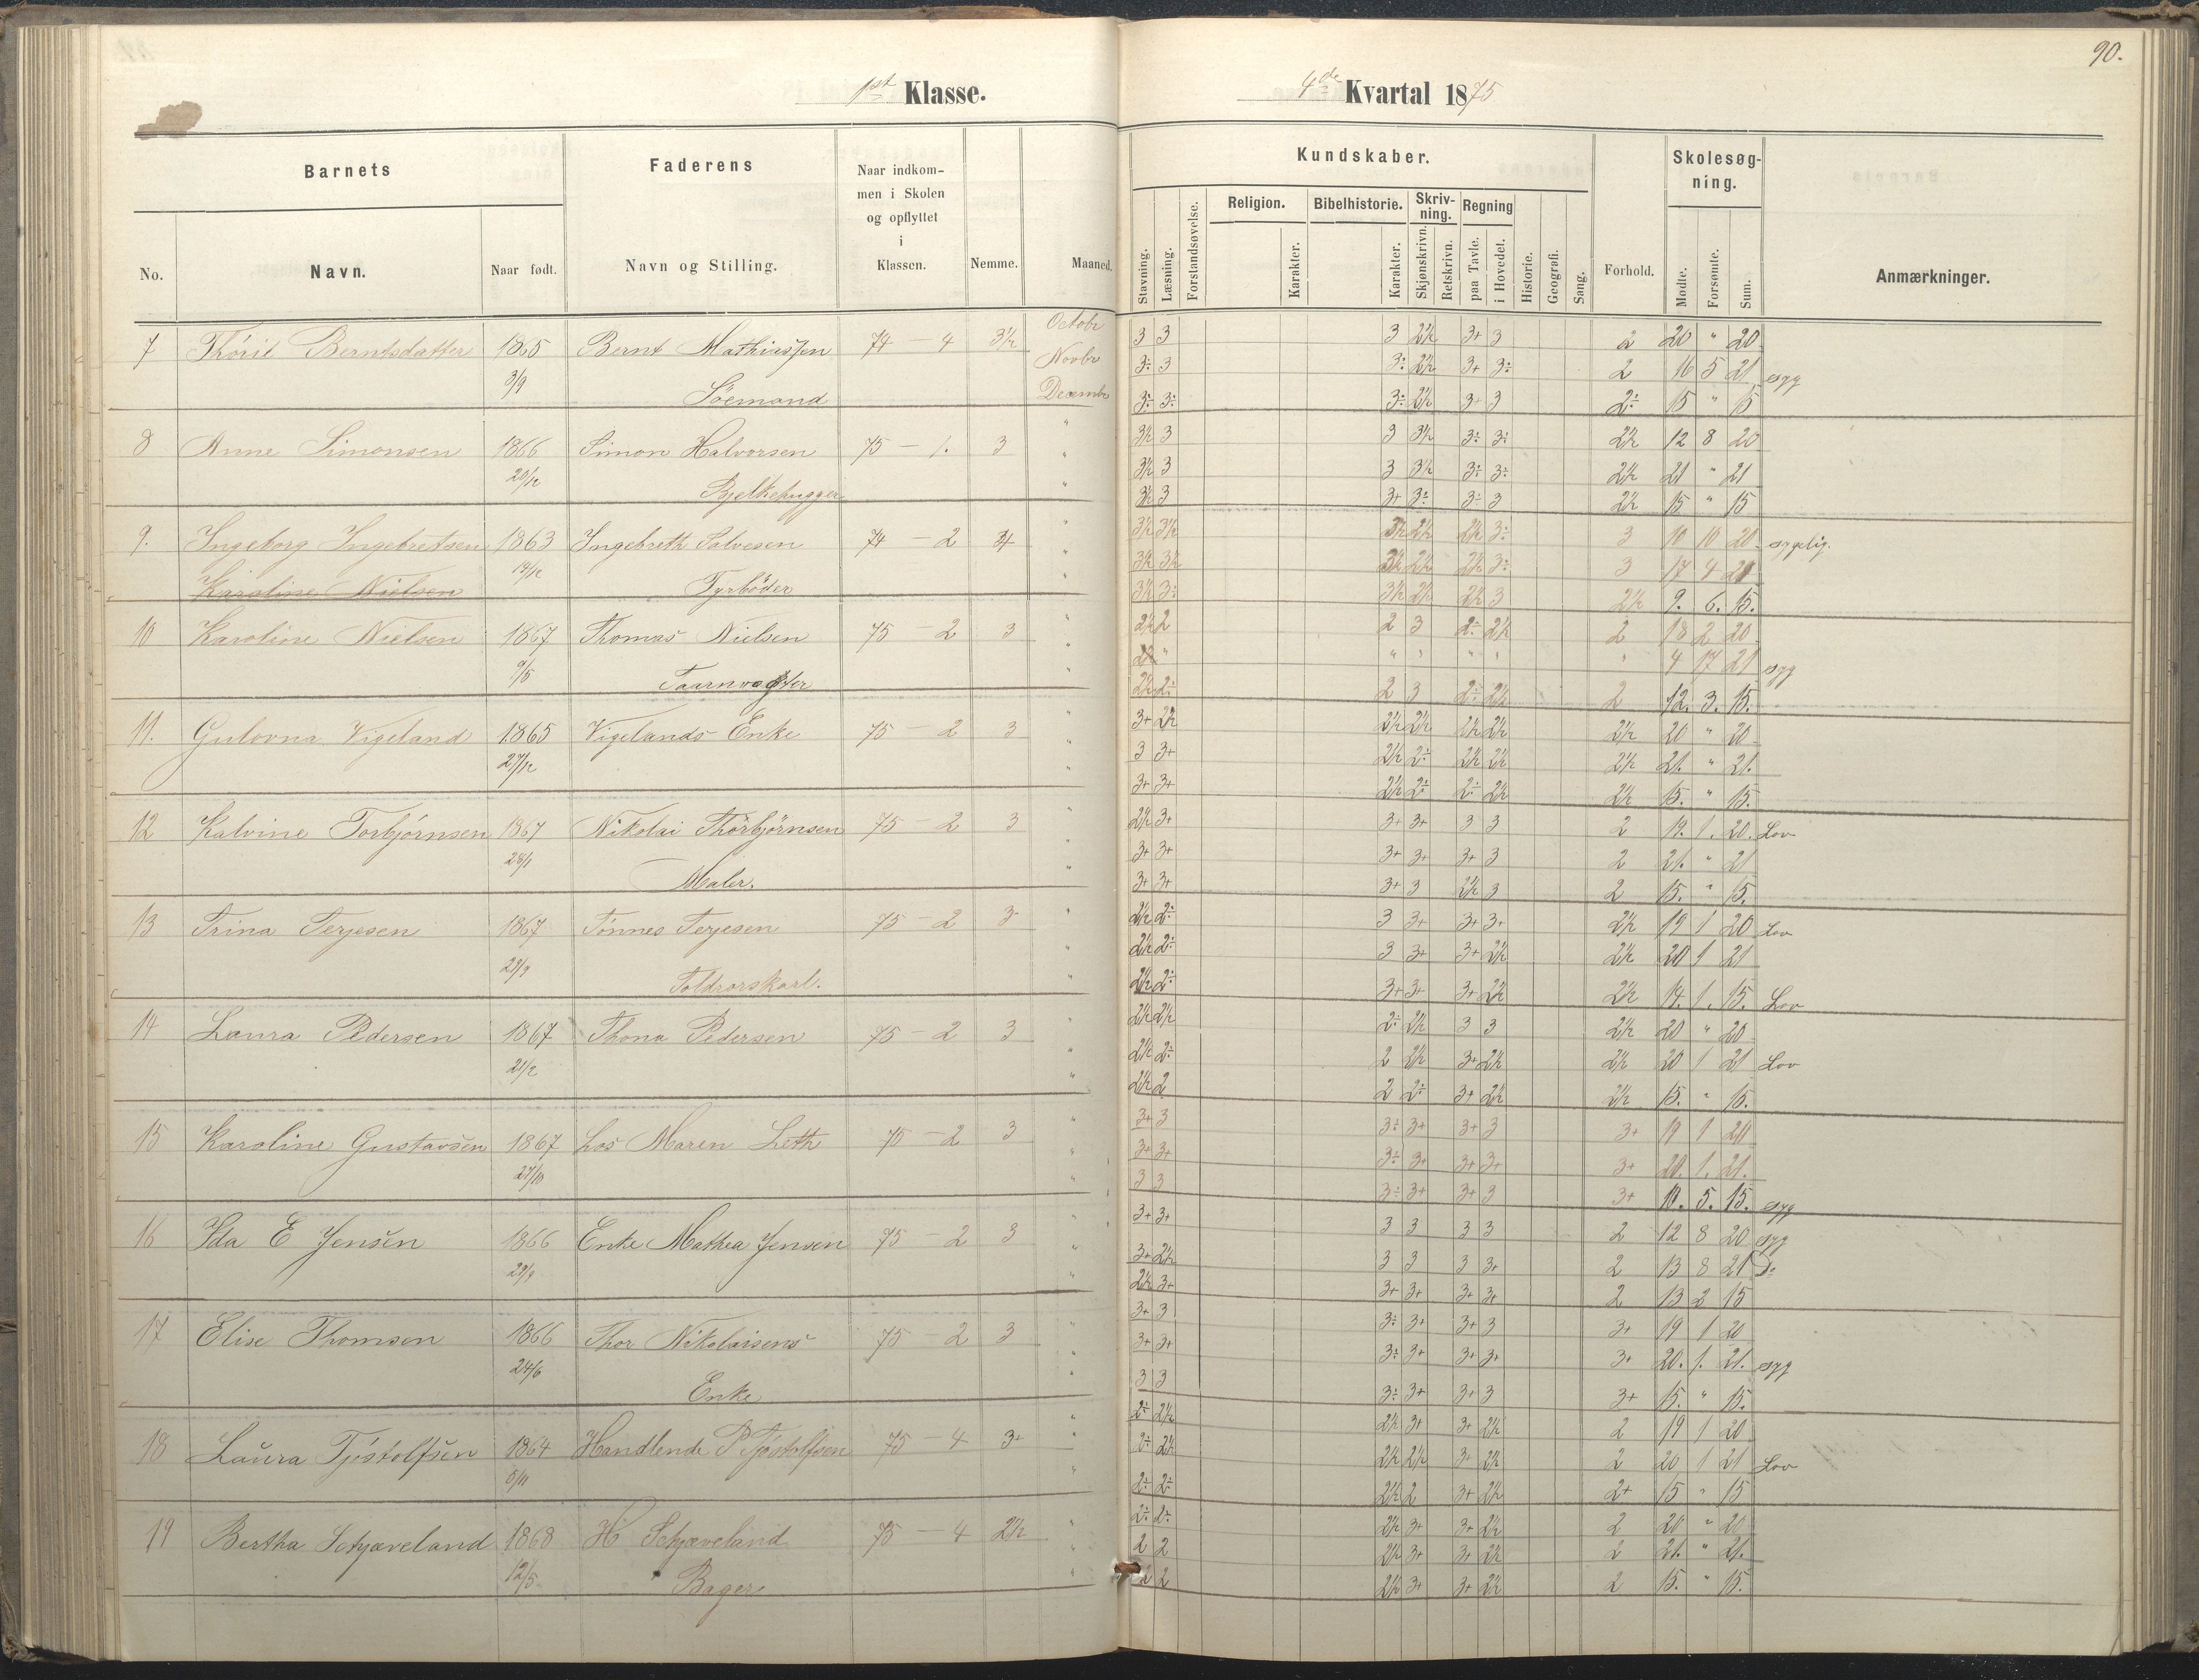 90.
1st Klasse.
4de Kvartal 1875
Barnets
Faderens
Naar indkom-
men i Skolen
og opflyttet
i
Klassen.
No.
Navn.
Naar født.
Navn og Stilling.
Nemme.
Maaned.
Kundskaber.
Skolesøg-
ning.
Stavning.
Læsning.
Forstandsøvelse.
Religion.
Karakter.
Bibelhistorie.
Karakter.
Skriv-
ning.
Skjønskrivn.
Retskrivn.
Regning
paa Tavle.
i Hovedet.
Historie.
Geografi.
Sang.
Forhold.
Mødte.
Forsømte.
Sum.
Anmærkninger.
7 Thóril Berntsdatter 1865 Bernt Mathiassen 74 - 4 3½ Octobr 3 3 3 2½ 3+ 3 2 20 " 20
3/9 Söemand Novbr 3÷ 3 3÷ 2½ 3+ 3÷ 2 16 5 21 syg
Decembr 3÷ 3÷ 3÷ 2½ 3+ 3 2÷ 15 " 15
8 Anne Simonsen 1866 Simon Halvorsen 75 - 1. 3 " 3½ 3 3 3½ 3÷ 3÷ 2½ 12 8 20
20/12 Bjelkehugger " 3½ 3 3 3½ 3÷ 3÷ 2½ 21 " 21
" 3½ 3 3+ 3÷ 3÷ 3 2½ 15 " 15
9. Ingeborg Ingebretsen 1863 Ingebreth Salvesen 74 - 2 " 3½ 3½ 3½ 2½ 2½ 3÷ 3 10 10 20 sygelig.
19/12 Fyrböder " 3½ 3½ 3½ 2½ 2½ 3÷ 3 17 4 21
Karoline Nielsen " 3½ 3÷ 3½ 2½ 2½ 3 2½ 9. 6. 15.
10 Karoline Nielsen 1867 Thomas Nielsen 75 - 2 3 " 2½ 2 2 3 2÷ 2½ 2 18 2 20
9/5 Taarnvagter " " " " " " " 4 17 21 syg
" 2½ 2÷ 2 3 2÷ 2½ 2 12. 3. 15.
11. Gulovna Vigeland 1865 Vigelands Enke 75 - 2 3 " 3+ 2½ 2½ 2½ 2½ 2½ 2½ 20 " 20
27/12 " 3 3+ 2½ 2÷ 2½ 2½ 2½ 21. " 21.
" 3+ 3+ 2½ 2÷ 2÷ 2½ 2½ 15. " 15.
12 Kalvine Torbjórnsen 1867 Nikolai Thörbjörnsen 75 - 2 3 " 2½ 3+ 3+ 3+ 3 3 2 19. 1. 20. Lov
28/1 Maler. " 3+ 3+ 3+ 3+ 3+ 3 2 21. " 21
" 3+ 3+ 3+ 3 2½ 3 2 15. " 15.
13 Trina Terjesen 1867 Tönnes Terjesen 75 - 2 3 " 2½ 2÷ 3 3+ 3+ 3+ 2½ 19 1 20 Lov
28/9 Toldrorskarl. " 2½ 2÷ 3 3+ 3+ 2½ 2½ 20 1 21
" 2½ 2÷ 3+ 3+ 3+ 2½ 2½ 14. 1. 15. Lov
14 Laura Pedersen 1867 Thona Pedersen 75 - 2 3 " 2½ 2½ 2÷ 2½ 3 3 2½ 20 " 20
21/2 " 2½ 2÷ 2 2½ 3+ 2½ 2½ 20 1 21 Lov
" 2½ 2 2 2÷ 3+ 2½ 2½ 15. " 15.
15 Karoline Gustavsen 1867 hos Maren Leth 75 - 2 3 " 3+ 3 3÷ 3+ 3+ 3 3+ 19 1 20
27/10 " 3+ 3+ 3÷ 3+ 3+ 3+ 3+ 20. 1. 21.
" 3 3 3÷ 3+ 3+ 3 3+ 10. 5. 15. syg
16 Ida E Jensen 1866 Enke Mathea Jensen 75 - 2 3 " 3+ 3+ 3 3 3 3 2 12 8 20 syg
29/9 " 3+ 2½ 3 3 3 3+ 2 13 8 21
" 2½ 3+ 3+ 3+ 3+ 3+ 2 13 2 15
17 Elise Thomsen 1866 Thor Nikolaisens 75 - 2 3 " 3+ 3 3÷ 3+ 3+ 3 3+ 19 1 20
24/6 Enke " 3+ 3+ 3÷ 3+ 3+ 3+ 3+ 20. 1. 21. syg
" 3 3 3÷ 3+ 3+ 3 3+ 15. " 15.
18 Laura Tjóstolfsen 1864 Handlende P Tjóstolfsen 75 - 4 3+ " 2÷ 2½ 2½ 3+ 3+ 2½ 2 19 1 20
5/11 " 2÷ 2½ 2½ 2½ 3+ 2½ 2 20 1 21 Lov
" 2÷ 2÷ 2½ 2 3+ 2½ 2+ 15 " 15
19 Bertha Schjæveland 1868 H Schjæveland 75 - 4 2½ " 2÷ 2÷ 2½ 3+ 3+ 2½ 2 20 " 20
12/5 Bager " 2 2 2½ 3+ 3+ 2½ 2 21. " 21.
" 2 2 2½ 3+ 3+ 2½ 2 15. " 15.